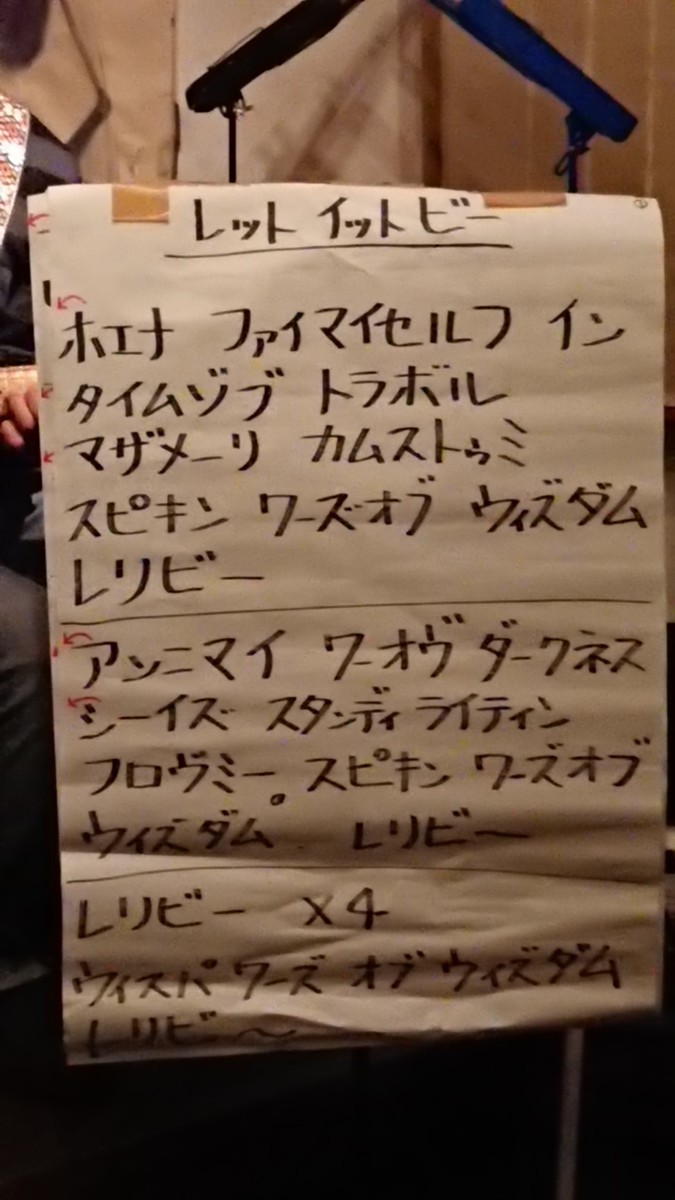 レット イットビー
ホエナ ファイマイセルフ イン
タイムゾブ トラボル
マザメーリ カムストゥミ
スピキン ワーズオブ ウィズダム
レリビー
アンニマイ ワーオヴダークネス
シーイズ スタンディライティン
フロヴミー。スピキン ワーズオブ
ウィズダム レリビ〜
レリビー ×4
ウィスパ ワーズ オブ ウィズダム
レリビ〜